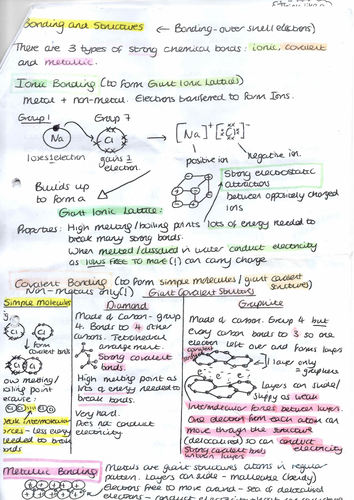 Bonding and Structures (← Bonding - outer shell electrons)
There are 3 types of strong chemical bonds: ionic, covalent
and metallic.
Ionic Bonding (to form Giant Ionic Lattices)
metal + non-metal. Electrons transferred to form Ions.
Group 1
Group 7
Na
Cl
[Na]+ [Cl]-
loses 1 electron
gains 1
electron.
positive ion
negative ion.
Builds up
to form a
Giant Ionic Lattice:
Strong electrostatic
attractions
between oppositely charged
ions
Properties: High melting/boiling points lots of energy needed to
break many strong bonds.
When melted/dissolved in water conduct electricity
as ions free to move (!) can carry charge.
Covalent Bonding (to form simple molecules/giant covalent
structures)
Non-metals only(!)
Giant Covalent Structures
Simple Molecules
Cl Cl
form
covalent
bonds
low melting/
boiling point
because:
Weak intermolecular
forces - less energy
needed to break
bonds
Diamond
Made of Carbon - group
4. Bonds to 4 other
carbons. Tetrahedral
arrangement.
Strong covalent
bonds.
High melting point as
lots of energy needed to
break bonds.
Very hard.
Does not conduct
electricity.
Graphite
Made of carbon. Group 4 but
every carbon bonds to 3 so one
electron left over and forms layers
1 layer only
= graphene
Layers can slide/
slippy as weak
intermolecular forces between layers.
One electron from each atom can
move through the structure
(delocalised) so can conduct
electricity
Strong covalent bonds
within layers
Metallic Bonding
Metals are giant structures atoms in regular
pattern. Layers can slide - malleable (bendy)
Electrons free to move around - sea of delocalised